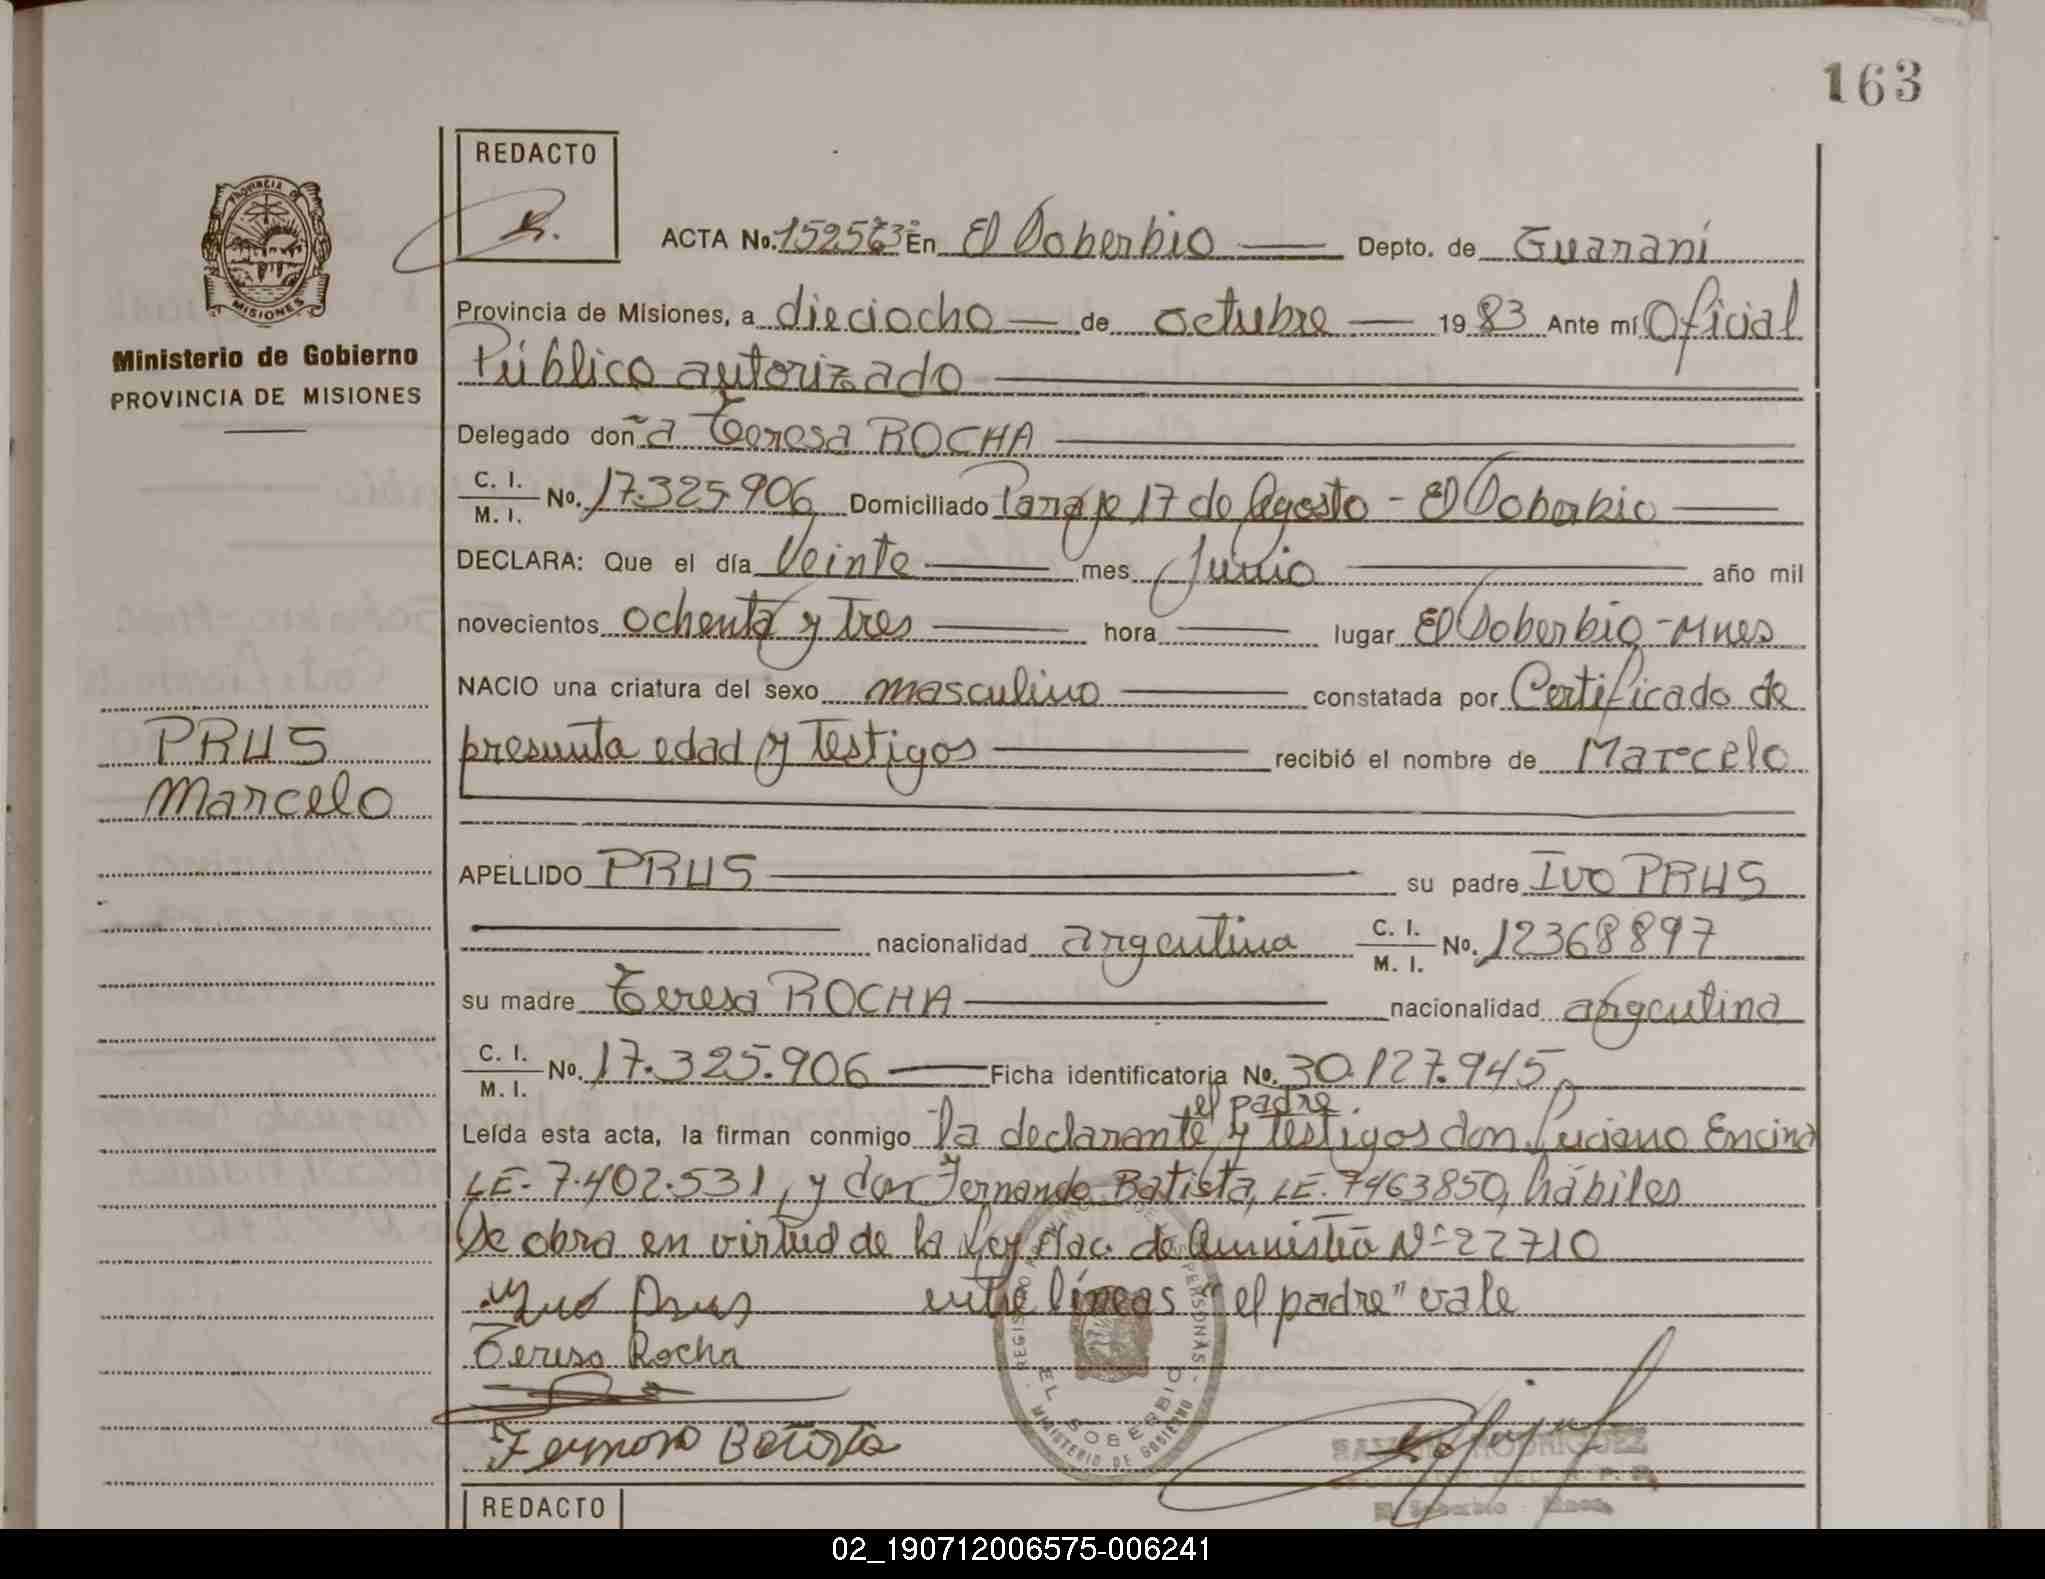 163
REDACTO
ACTA No. En El Soberbio Depto. de Guaraní
Provincia de Misiones, a dieciocho de octubre 1983 Ante mí Oficial
Público autorizado
Delegado doña Teresa ROCHA
C. I.
M. I. No. 17.325.906 Domiciliado Paraje 17 de Agosto - El Soberbio
DECLARA: Que el día Veinte mes Junio año mil
novecientos ochenta y tres hora lugar El Soberbio - Mnes
NACIO una criatura del sexo masculino constatada por Certificado de
presunta edad y testigos recibió el nombre de Marcelo
APELLIDO PRUS su padre Ivo PRUS
nacionalidad argentina C. I.
M. I. No. 12368897
su madre Teresa ROCHA nacionalidad argentina
C. I.
M. I. No. 17.325.906 Ficha identificatoria No. 30.127.945
el padre
Leída esta acta, la firman conmigo la declarante y testigos don Luciano Encina
LE- 7.402.531, y don Fernando Batista, LE. 7463850, hábiles
Se obra en virtud de la Ley Nac. de Amnistía Nº 22710
Ivo Prus entre líneas "el padre" vale
Teresa Rocha
REGISTRO PROVINCIAL DE LAS PERSONAS
EL SOBERBIO
MINISTERIO DE GOBIERNO
RODRIGUEZ
El Soberbio
REDACTO
PROVINCIA DE
MISIONES
Ministerio de Gobierno
PROVINCIA DE MISIONES
PRUS
Marcelo
02_190712006575-006241